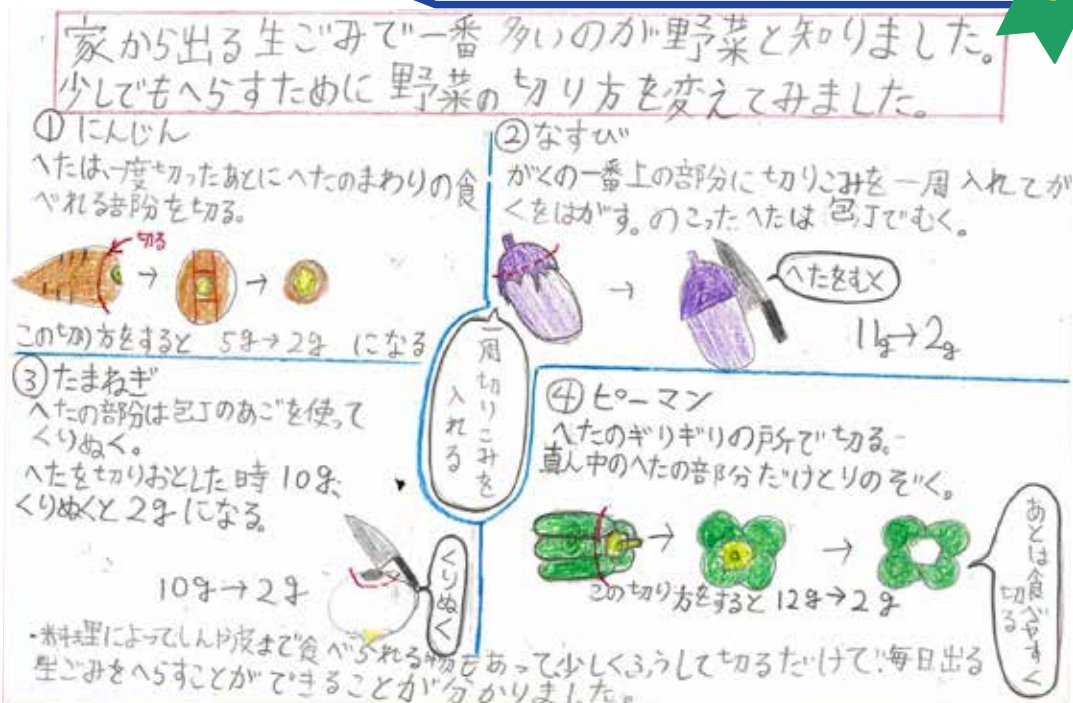 家から出る生ごみで一番多いのが野菜と知りました。
少しでもへらすために野菜の切り方を変えてみました。
①にんじん
へたは、一度切ったあとにへたのまわりの食
べれる部分を切る。
切る
→
→
この切り方をすると 5g→2g になる
②なすび
がくの一番上の部分に切りこみを一周入れてが
くをはがす。のこったへたは包丁でむく。
→
へたをむく
11g→2g
一周切りこみを
入れる
③たまねぎ
へたの部分は包丁のあごを使って
くりぬく。
へたを切りおとした時10g、
くりぬくと2gになる。
10g→2g
くりぬく
④ピーマン
へたのギリギリの所で切る。
真ん中のへたの部分だけとりのぞく。
→
→
この切り方をすると12g→2g
あとは食べやすく
切る
・料理によってしんや皮まで食べられる物もあって、少しくふうして切るだけで、毎日出る
生ごみをへらすことができることが分かりました。